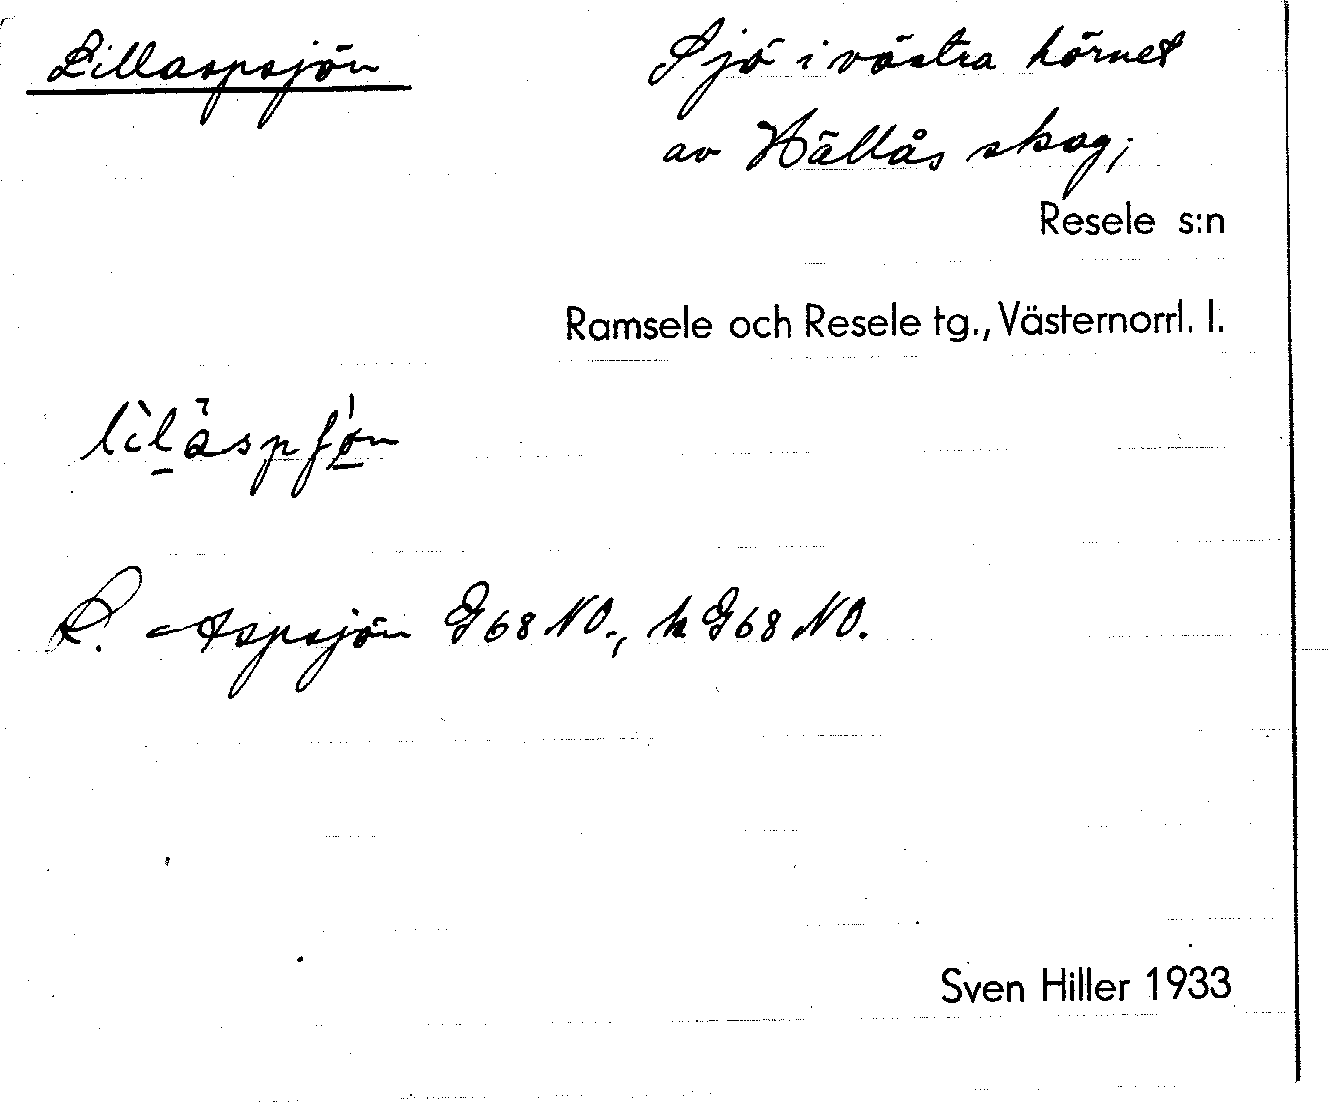 Lillaspsjön
Sjö i västra hörnet
av Hällås skog;
Resele s:n
Ramsele och Resele tg., Västernorrl. l.
L. Aspsjön G68 NO., k G68 NO.
Sven Hiller 1933